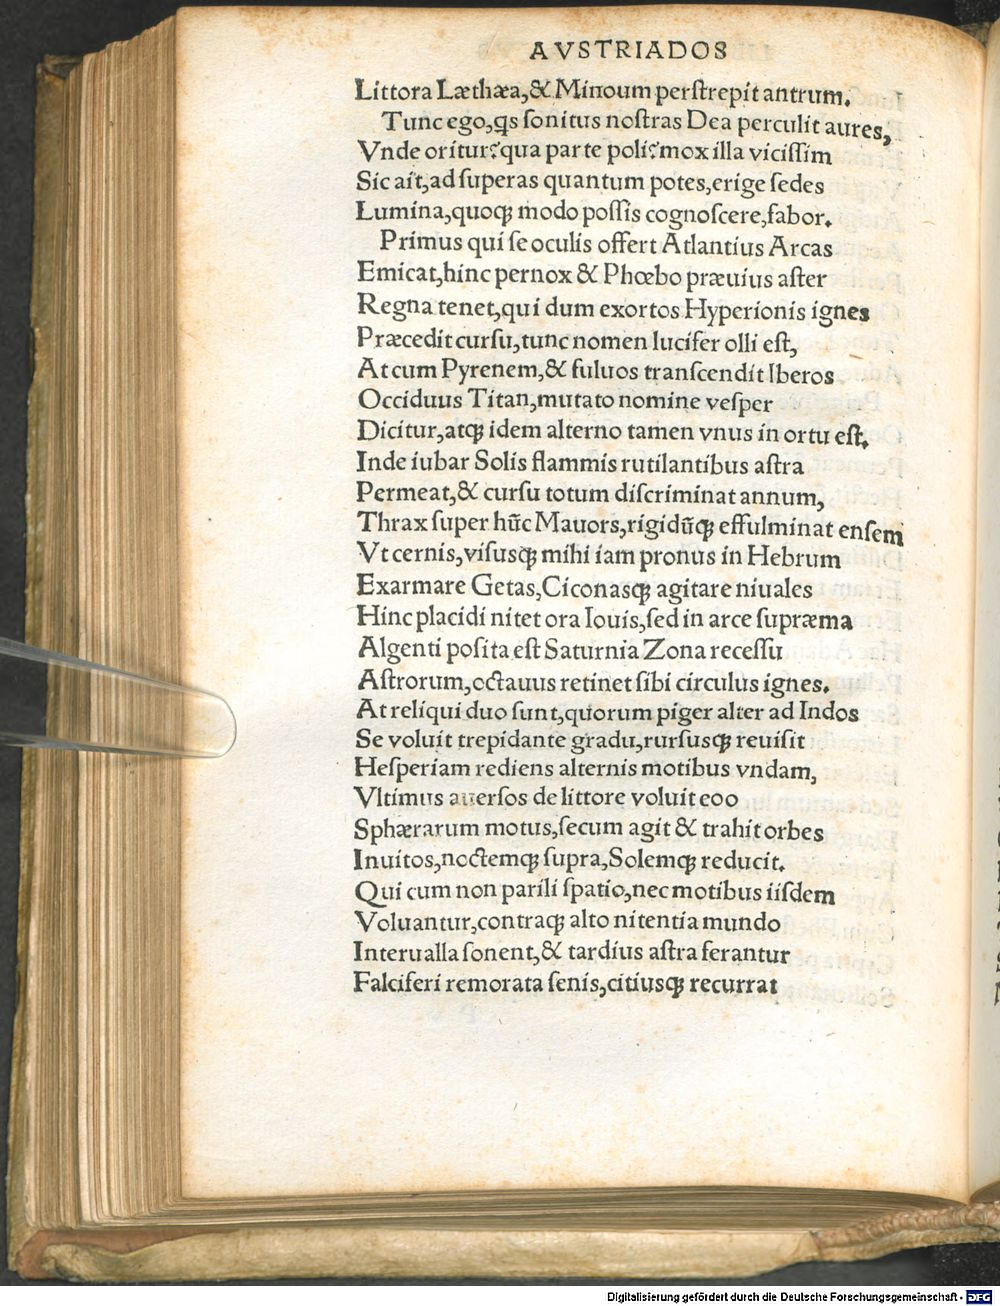 AVSTRIADOS
Littora Læthæa,& Minoum perstrepit antrum.
Tunc ego,qs sonitus nostras Dea perculit aures,
Vnde oritur?qua parte poli?mox illa vicissim
Sic ait,ad superas quantum potes,erige sedes
Lumina,quoqꝫ modo possis cognoscere,fabor.
Primus qui se oculis offert Atlantius Arcas
Emicat,hinc pernox & Phœbo præuius aster
Regna tenet,qui dum exortos Hyperionis ignes
Præcedit cursu,tunc nomen lucifer olli est,
At cum Pyrenem,& fuluos transcendit Iberos
Occiduus Titan,mutato nomine vesper
Dicitur,atqꝫ idem alterno tamen vnus in ortu est.
Inde iubar Solis flammis rutilantibus astra
Permeat,& cursu totum discriminat annum,
Thrax super hūc Mauors,rigidūqꝫ effulminat ensem
Vt cernis,visusqꝫ mihi iam pronus in Hebrum
Exarmare Getas,Ciconasqꝫ agitare niuales
Hinc placidi nitet ora Iouis,sed in arce supræma
Algenti posita est Saturnia Zona recessu
Astrorum,octauus retinet sibi circulus ignes.
At reliqui duo sunt,quorum piger alter ad Indos
Se voluit trepidante gradu,rursusqꝫ reuisit
Hesperiam rediens alternis motibus vndam,
Vltimus auersos de littore voluit eoo
Sphærarum motus,secum agit & trahit orbes
Inuitos,noctemqꝫ supra,Solemqꝫ reducit.
Qui cum non parili spatio,nec motibus iisdem
Voluantur,contraqꝫ alto nitentia mundo
Interualla sonent,& tardius astra ferantur
Falciferi remorata senis,citiusqꝫ recurrat
Digitalisierung gefördert durch die Deutsche Forschungsgemeinschaft - DFG